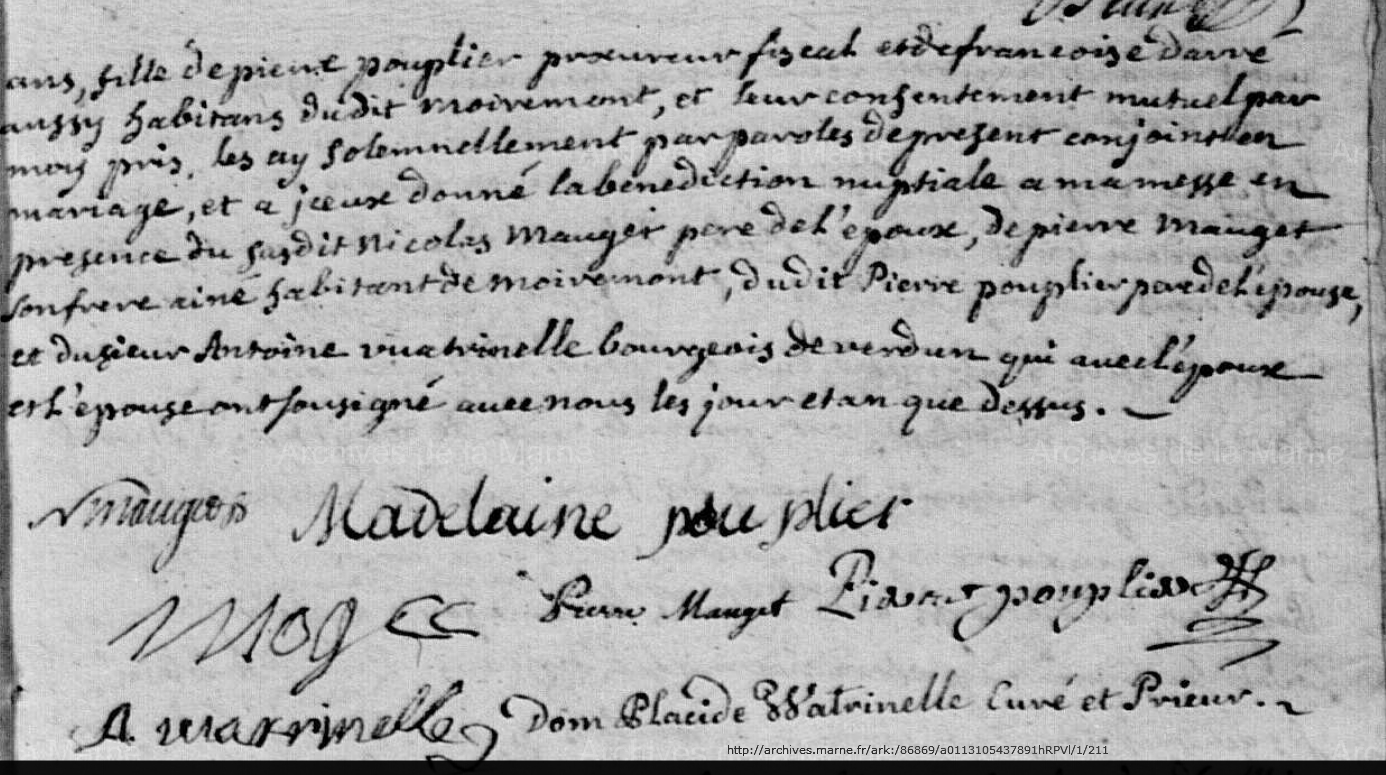 ans, fille de pierre pouplier procureur fiscal et de francoise darré
aussy habitans dudit moiremont, et leur consentement mutuel par
moy pris, les ay solemnellement par paroles de present conjoint en
mariage, et a jceux donné la benediction nuptiale a ma messe en
presence du susdit Nicolas Mauget pere de l'époux, de pierre Mauget
son frere ainé habitant de moiremont, dudit Pierre pouplier pere de l'épouse,
et du sieur Antoine vuatrinelle bourgeois de verdun qui avec l'époux
et l'epouse ont sousigné avec nous les jour et an que dessus.
Madelaine pouplier
Pierre Mauget Pierre pouplier
A. watrinelle Dom Placide Watrinelle Curé et Prieur.
Archives de la Marne Archives de la Marne
http://archives.marne.fr/ark:/86869/a0113105437891hRPVl/1/211